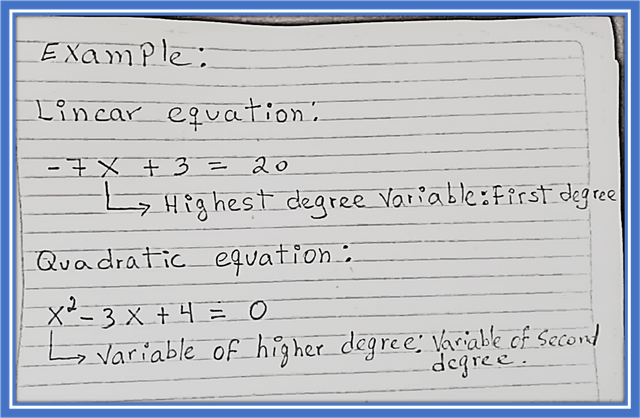 Example:
Linear equation:
-7x + 3 = 20
↳ Highest degree variable: First degree
Quadratic equation:
x² - 3x + 4 = 0
↳ Variable of higher degree: Variable of second
degree.